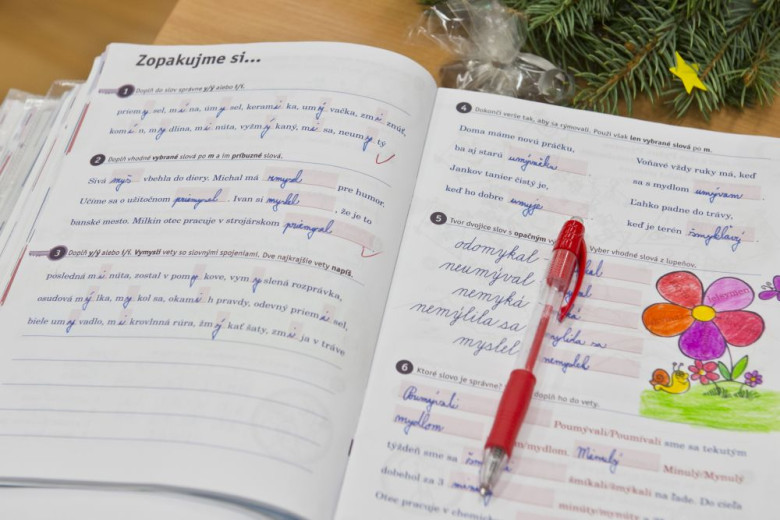 Zopakujme si...
1 Doplň do slov správne y/ý alebo i/í.
priemysel, mína, úmysel, keramika, umývačka, zmiznúť,
komín, mydlina, minúta, vyžmýkaný, misa, neumytý
2 Doplň vhodné vybrané slová po m a im príbuzné slová.
Sivá myš vbehla do diery. Michal má zmysel pre humor.
Učíme sa o užitočnom priemysel. Ivan si myslel, že je to
banské mesto. Milkin otec pracuje v strojárskom priemysel
3 Doplň y/ý alebo i/í. Vymysli vety so slovnými spojeniami. Dve najkrajšie vety napíš.
posledná minúta, zostal v pomykove, vymyslená rozprávka,
osudová mýlka, mykol sa, okamih pravdy, odevný priemysel,
biele umývadlo, mikrovlnná rúra, žmýkať šaty, zmija v tráve
4 Dokonči verše tak, aby sa rýmovali. Použi však len vybrané slová po m.
Doma máme novú práčku,
ba aj starú umývačku.
Jankov tanier čistý je,
keď ho dobre umyje.
Voňavé vždy ruky má, keď
sa s mydlom umývam.
Ľahko padne do trávy,
keď je terén šmykľavý
5 Tvor dvojice slov s opačným Vyber vhodné slová z lupeňov.
odomykal
neumýval
nemyká
nemýlila sa mýlila sa
myslel nemyslel
6 Ktoré slovo je správne? doplň ho do vety.
Poumývali Poumývali/Poumívali sme sa tekutým
mydlom m/mydlom. Minulý Minulý/Mynulý
týždeň sme sa šmíkali/šmýkali na ľade. Do cieľa
dobehol za 3 minúty/mynúty
Otec pracuje v chemickom